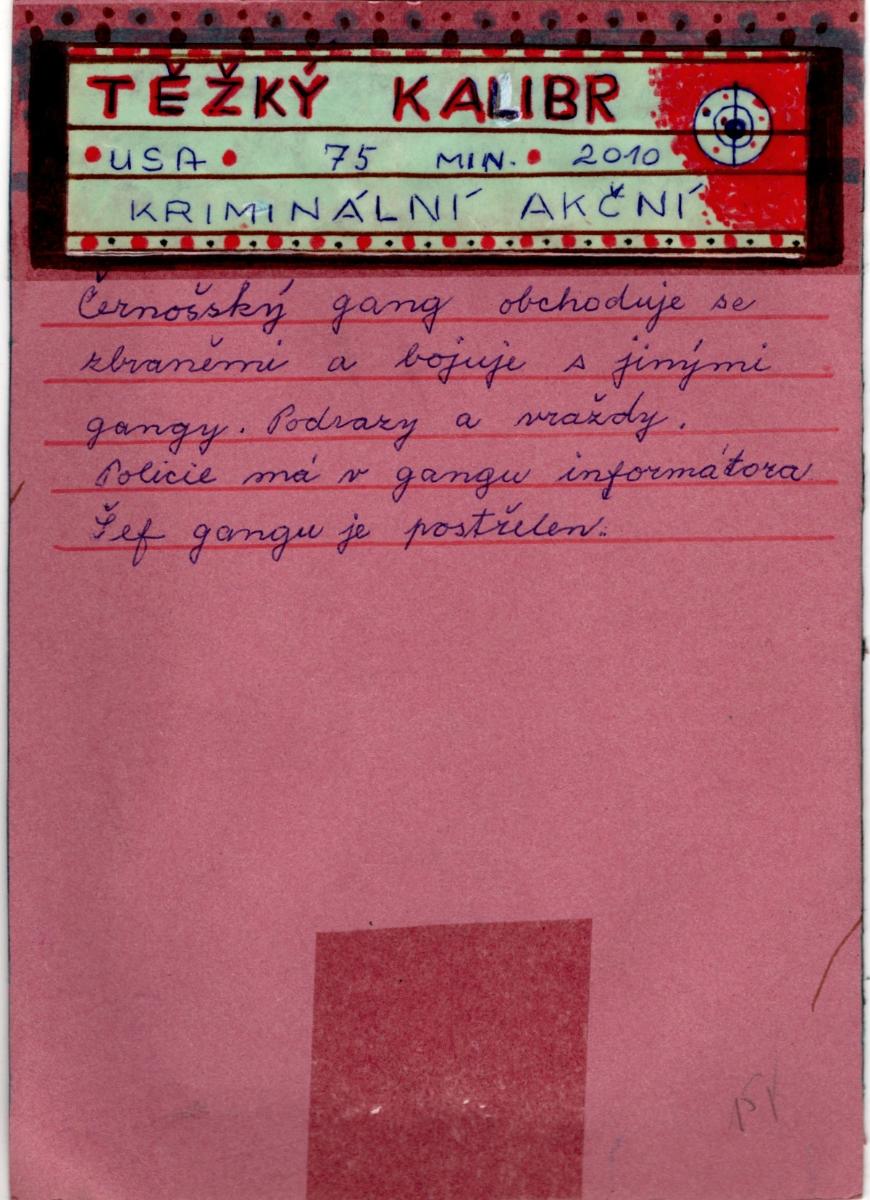 TĚŽKÝ KALIBR
USA 75 MIN. 2010
KRIMINÁLNÍ AKČNÍ
Černošský gang obchoduje se
zbraněmi a bojuje s jinými
gangy. Podrazy a vraždy.
Policie má v gangu informátora
Šéf gangu je postřelen.